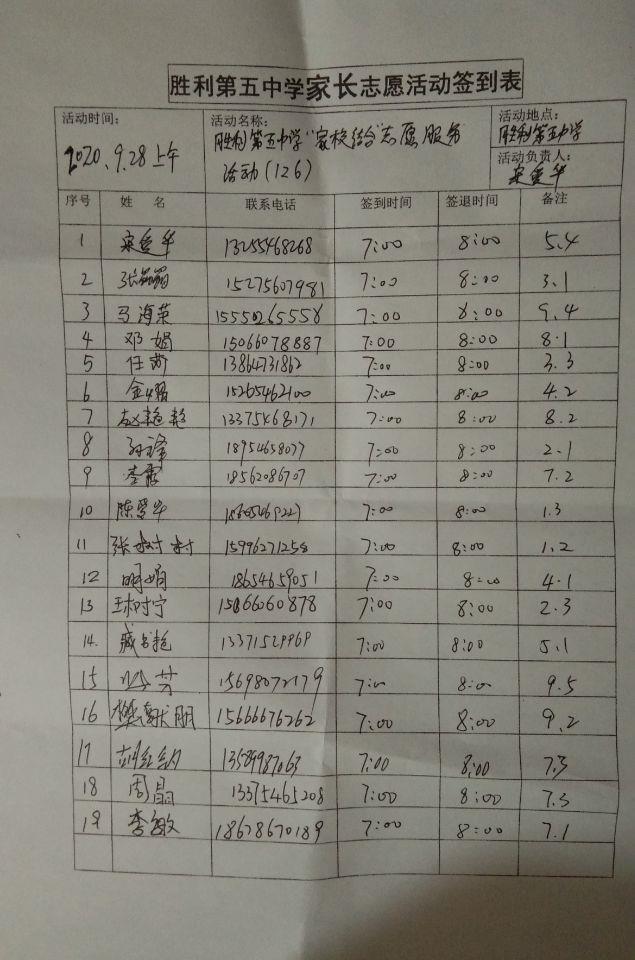 胜利第五中学家长志愿活动签到表
活动时间: 活动名称: 活动地点:
2020.9.28上午 胜利第五中学“家校结合”志愿服务 胜利第五中学
活动(126) 活动负责人:
宋爱华
序号 姓名 联系电话 签到时间 签退时间 备注
1 宋爱华 13255468268 7:00 8:00 5.4
2 15275607981 7:00 8:00 3.1
3 马海荣 15550265558 7:00 8:00 9.4
4 邓娟 15066078887 7:00 8:00 8.1
5 13864731862 7:00 8:00 3.3
6 15265462100 7:00 8:00 4.2
7 赵艳艳 13375468171 7:00 8:00 8.2
8 18954658077 7:00 8:00 2.1
9 李霞 18562086707 7:00 8:00 7.2
10 陈爱华 7:00 8:00 1.3
11 张树村 15996271258 7:00 8:00 1.2
12 明娟 18654659051 7:00 8:00 4.1
13 15066060878 7:00 8:00 2.3
14. 臧书艳 13371529969 7:00 8:00 5.1
15 15698072179 7:00 8:00 9.5
16 樊献朋 15666676262 7:00 8:00 9.2
17 13589987063 7:00 8:00 7.3
18 周晶 13375465208 7:00 8:00 7.3
19 李敏 18678670189 7:00 8:00 7.1